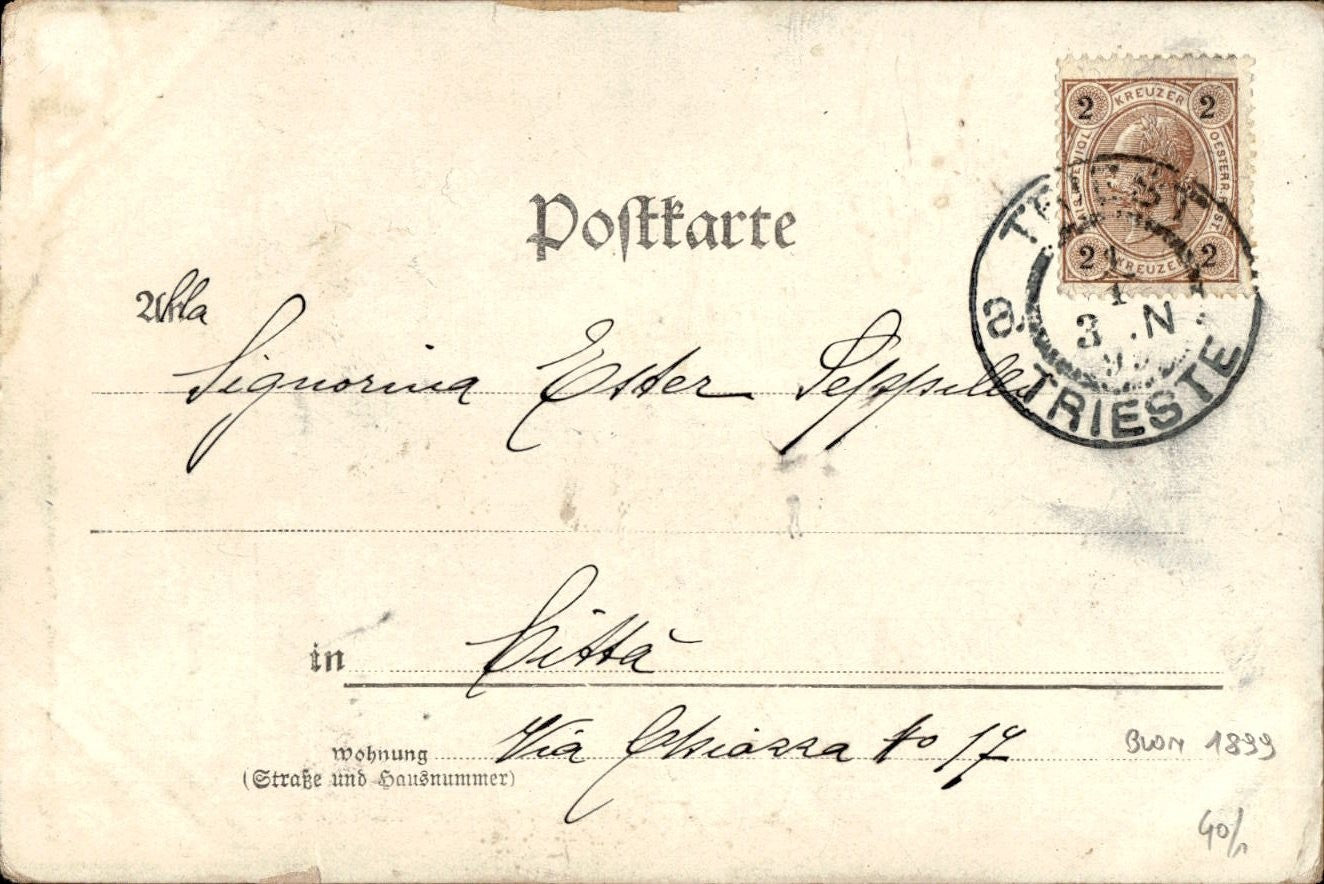 Postkarte
Alla
Signorina Ester Seppilli
in Città
Wohnung Via Chiozza No 17
(Straße und Hausnummer)
2 KREUZER 2
2 KREUZER 2
TRIEST
3 N
TRIESTE
1899
40/